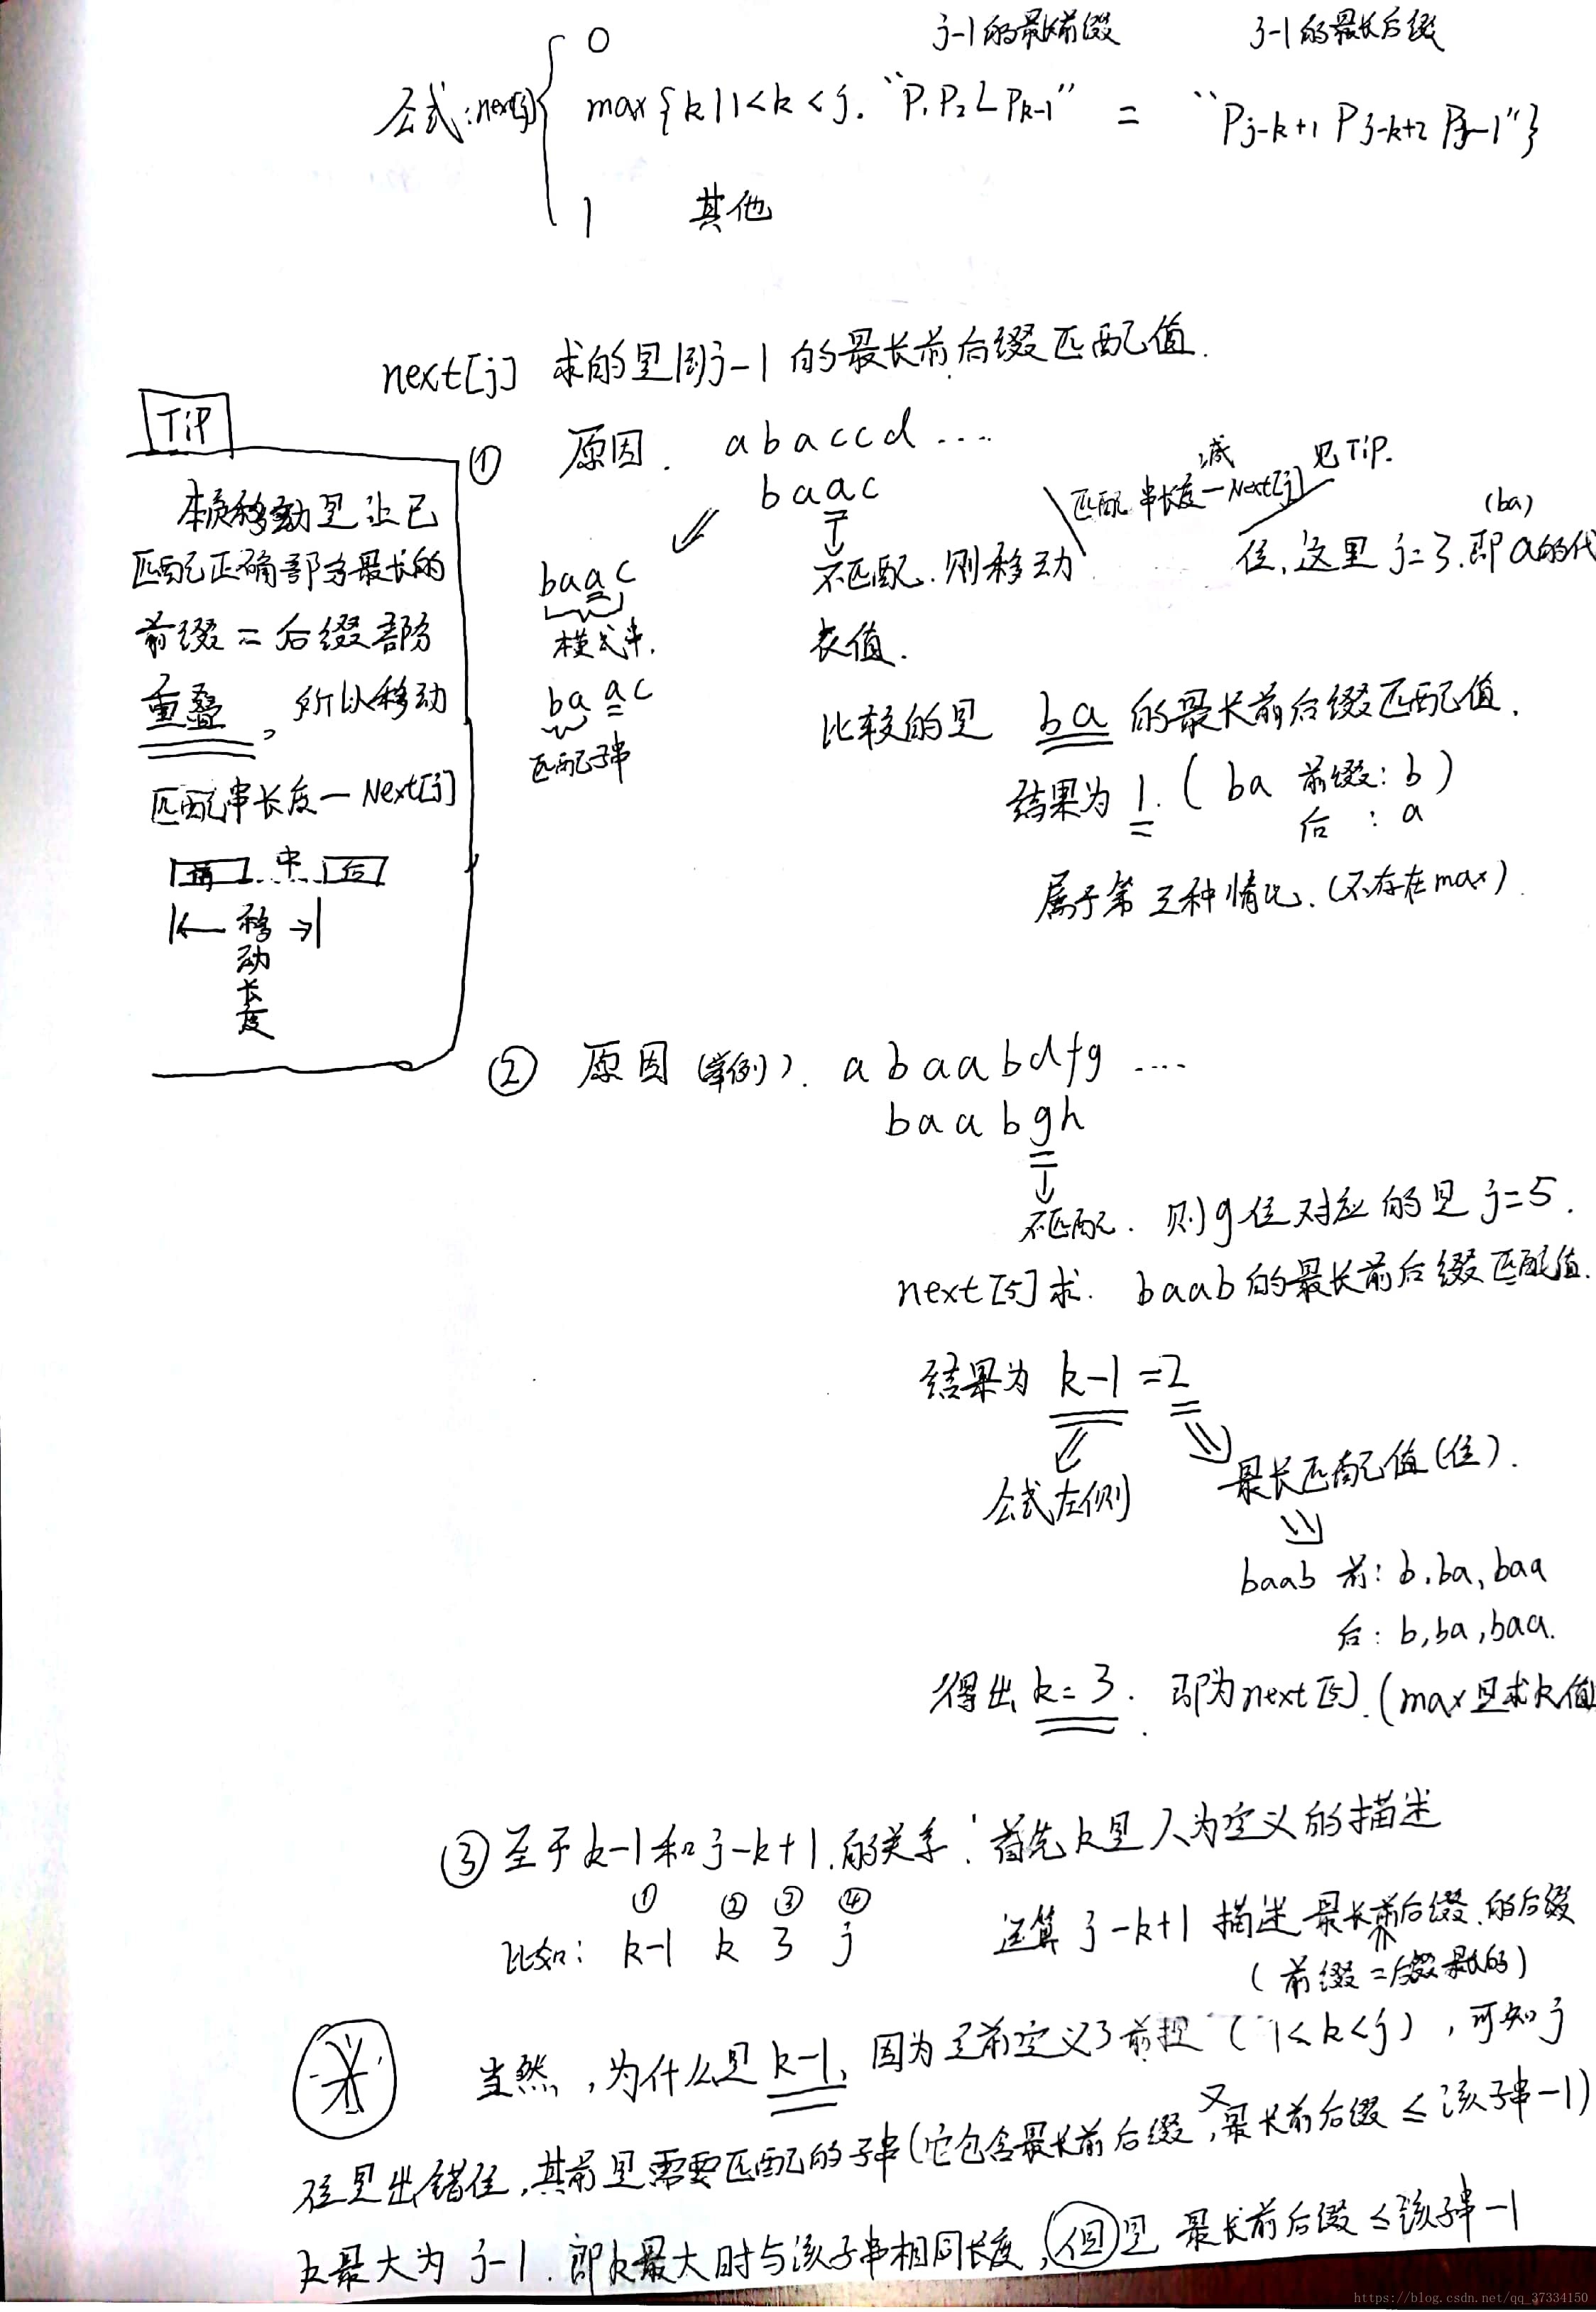 j-1的最长前缀 j-1的最长后缀
0
公式:next[j] max{k|1<k<j. "P₁P₂LPk-1" = "Pj-k+1 Pj-k+2 Pj-1"}
1 其他
next[j] 求的是到j-1的最长前后缀匹配值.
TiP
本质移动是让已
匹配正确部分最长的
前缀=后缀部分
重叠, 所以移动
匹配串长度-Next[j]
前 中 后
移
动
长
度
① 原因. abaccd....
baac
减 见TiP.
匹配串长度-Next[j]
(ba)
不匹配.则移动 位,这里j=3.即a的代
表值.
baac
模式串.
baac
匹配子串
比较的是 ba 的最长前后缀匹配值.
结果为1. (ba 前缀:b)
后:a
属于第三种情况.(不存在max).
② 原因(举例). abaabdfg ....
baabgh
不匹配. 则g位对应的是j=5.
next[5]求. baab的最长前后缀匹配值.
结果为 k-1=2
公式左侧 最长匹配值(位).
baab 前:b,ba,baa
后:b,ba,baa.
得出k=3. 即为next[5].(max是求k值
③至于k-1和j-k+1.的关系:首先k是人为定义的描述
① ② ③ ④
比如: k-1 k 3 j 运算j-k+1描述最长前后缀.的后缀
(前缀=后缀最长的)
当然,为什么是k-1,因为之前定义了前提(1<k<j),可知j
位是出错位,其前是需要匹配的子串(它包含最长前后缀,又最长前后缀≤该子串-1)
k最大为j-1.即k最大时与该子串相同长度,但是 最长前后缀≤该子串-1
https://blog.csdn.net/qq_37334150